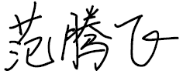 范腾飞